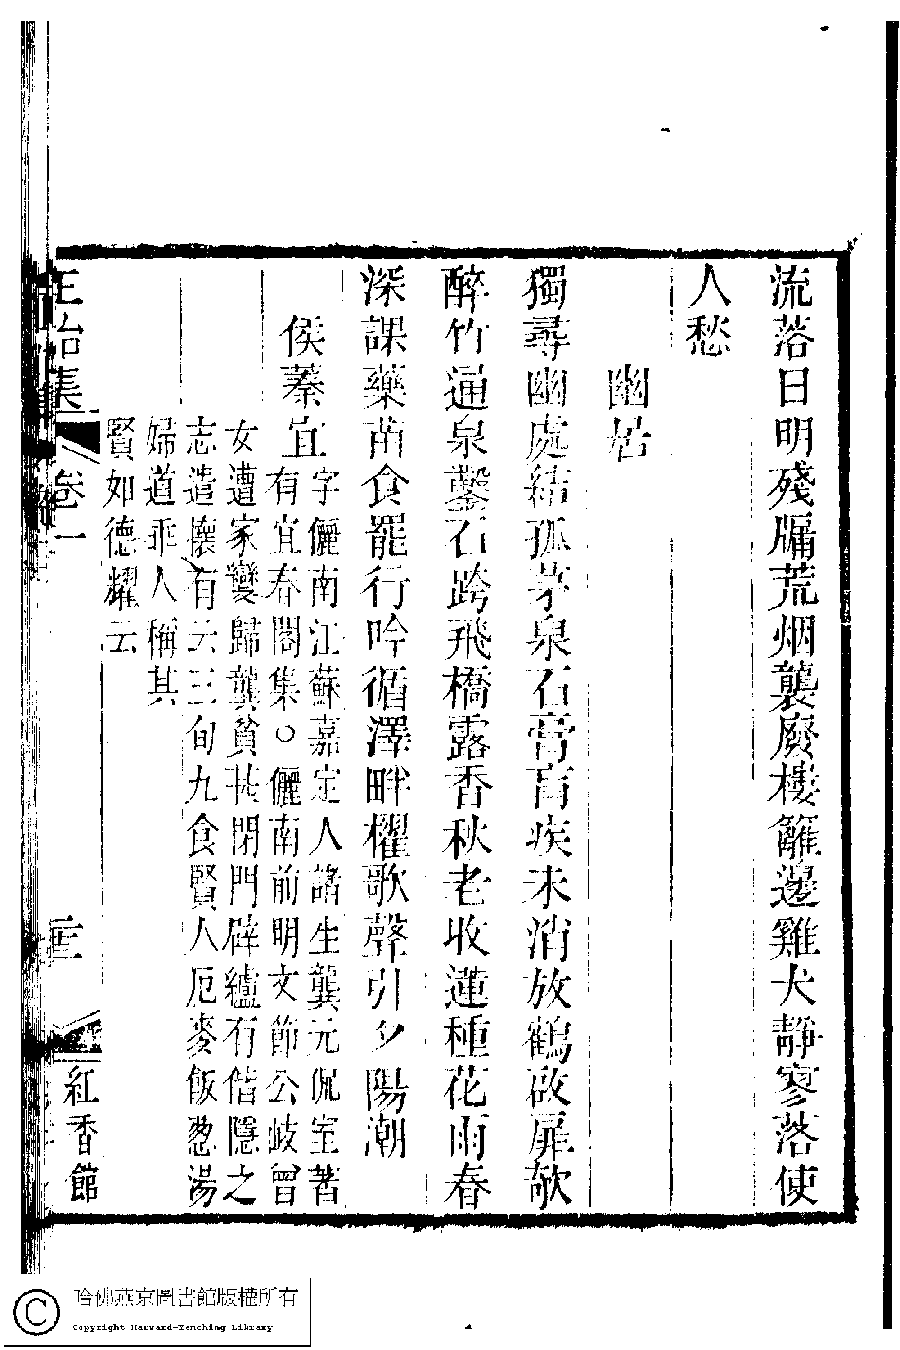 流落日明殘牖荒烟襲廢樓籬邊雞犬靜寥落使
人愁
幽居
獨尋幽處結孤茅泉石膏肓疾未消放鶴啟扉欹
醉竹通泉鑿石跨飛橋露香秋老收蓮種花雨春
深課藥苗食罷行吟循澤畔櫂歌聲引夕陽潮
侯蓁宜
字儷南江蘇嘉定人諸生龔元侃室著
有宜春閣集○儷南前明文節公岐曾
女遭家變歸龔貧甚閉門辟纑有偕隱之
志遣懷有云三旬九食賢人厄麥飯葱湯
婦道乖人稱其
賢如德耀云
正始集
卷一
紅香館
哈佛燕京圖書館版權所有
Copyright Harvard-Yenching Library